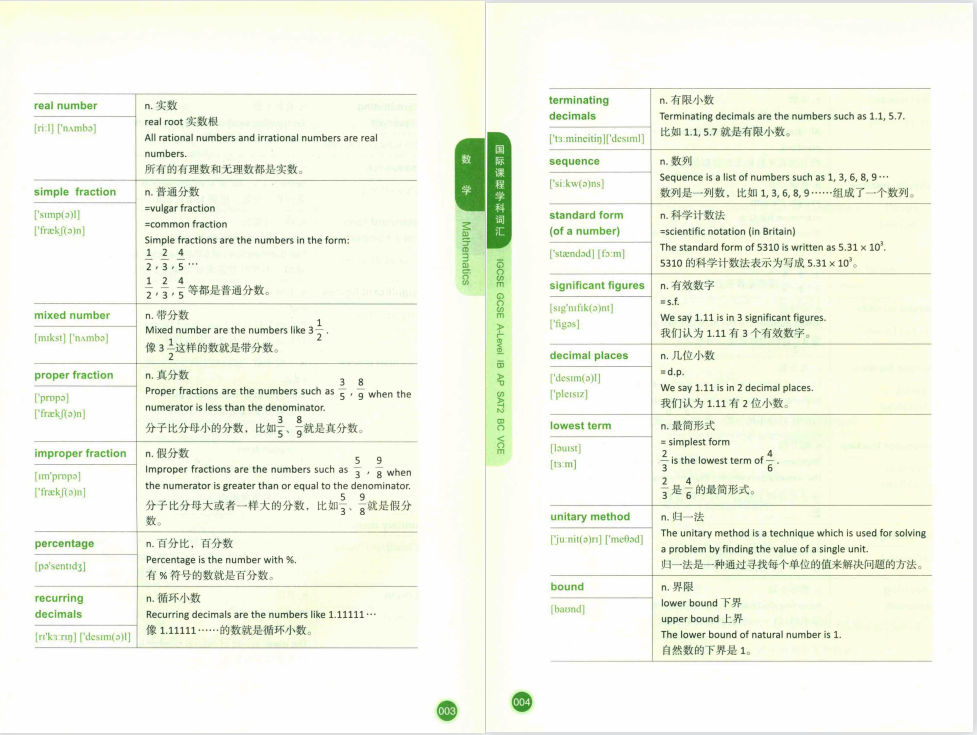 real number
[ri:l] ['nʌmbə]
n. 实数
real root 实数根
All rational numbers and irrational numbers are real
numbers.
所有的有理数和无理数都是实数。
simple fraction
['sɪmp(ə)l]
['frækʃ(ə)n]
n. 普通分数
=vulgar fraction
=common fraction
Simple fractions are the numbers in the form:
1/2, 2/3, 4/5 …
1/2, 2/3, 4/5 等都是普通分数。
mixed number
[mɪkst] ['nʌmbə]
n. 带分数
Mixed number are the numbers like 3 1/2.
像 3 1/2 这样的数就是带分数。
proper fraction
['prɒpə]
['frækʃ(ə)n]
n. 真分数
Proper fractions are the numbers such as 3/5, 8/9 when the
numerator is less than the denominator.
分子比分母小的分数，比如 3/5、8/9 就是真分数。
improper fraction
[ɪm'prɒpə]
['frækʃ(ə)n]
n. 假分数
Improper fractions are the numbers such as 5/3, 9/8 when
the numerator is greater than or equal to the denominator.
分子比分母大或者一样大的分数，比如 5/3、9/8 就是假分
数。
percentage
[pə'sentɪdʒ]
n. 百分比，百分数
Percentage is the number with %.
有 % 符号的数就是百分数。
recurring
decimals
[rɪ'kɜ:rɪŋ] ['desɪm(ə)l]
n. 循环小数
Recurring decimals are the numbers like 1.11111…
像 1.11111……的数就是循环小数。
数学
Mathematics
003
国际课程学科词汇
IGCSE GCSE A-Level IB AP SAT2 BC VCE
terminating
decimals
['tɜ:mineitiŋ]['desıml]
n. 有限小数
Terminating decimals are the numbers such as 1.1, 5.7.
比如 1.1, 5.7 就是有限小数。
sequence
['si:kw(ə)ns]
n. 数列
Sequence is a list of numbers such as 1, 3, 6, 8, 9…
数列是一列数，比如 1, 3, 6, 8, 9……组成了一个数列。
standard form
(of a number)
['stændəd] [fɔ:m]
n. 科学计数法
=scientific notation (in Britain)
The standard form of 5310 is written as 5.31 × 10³.
5310 的科学计数法表示为写成 5.31 × 10³。
significant figures
[sɪg'nɪfɪk(ə)nt]
['figəs]
n. 有效数字
=s.f.
We say 1.11 is in 3 significant figures.
我们认为 1.11 有 3 个有效数字。
decimal places
['desɪm(ə)l]
['pleɪsɪz]
n. 几位小数
=d.p.
We say 1.11 is in 2 decimal places.
我们认为 1.11 有 2 位小数。
lowest term
[ləuɪst]
[tɜ:m]
n. 最简形式
= simplest form
2/3 is the lowest term of 4/6.
2/3 是 4/6 的最简形式。
unitary method
['ju:nit(ə)rɪ] ['meθəd]
n. 归一法
The unitary method is a technique which is used for solving
a problem by finding the value of a single unit.
归一法是一种通过寻找每个单位的值来解决问题的方法。
bound
[baʊnd]
n. 界限
lower bound 下界
upper bound 上界
The lower bound of natural number is 1.
自然数的下界是 1。
004